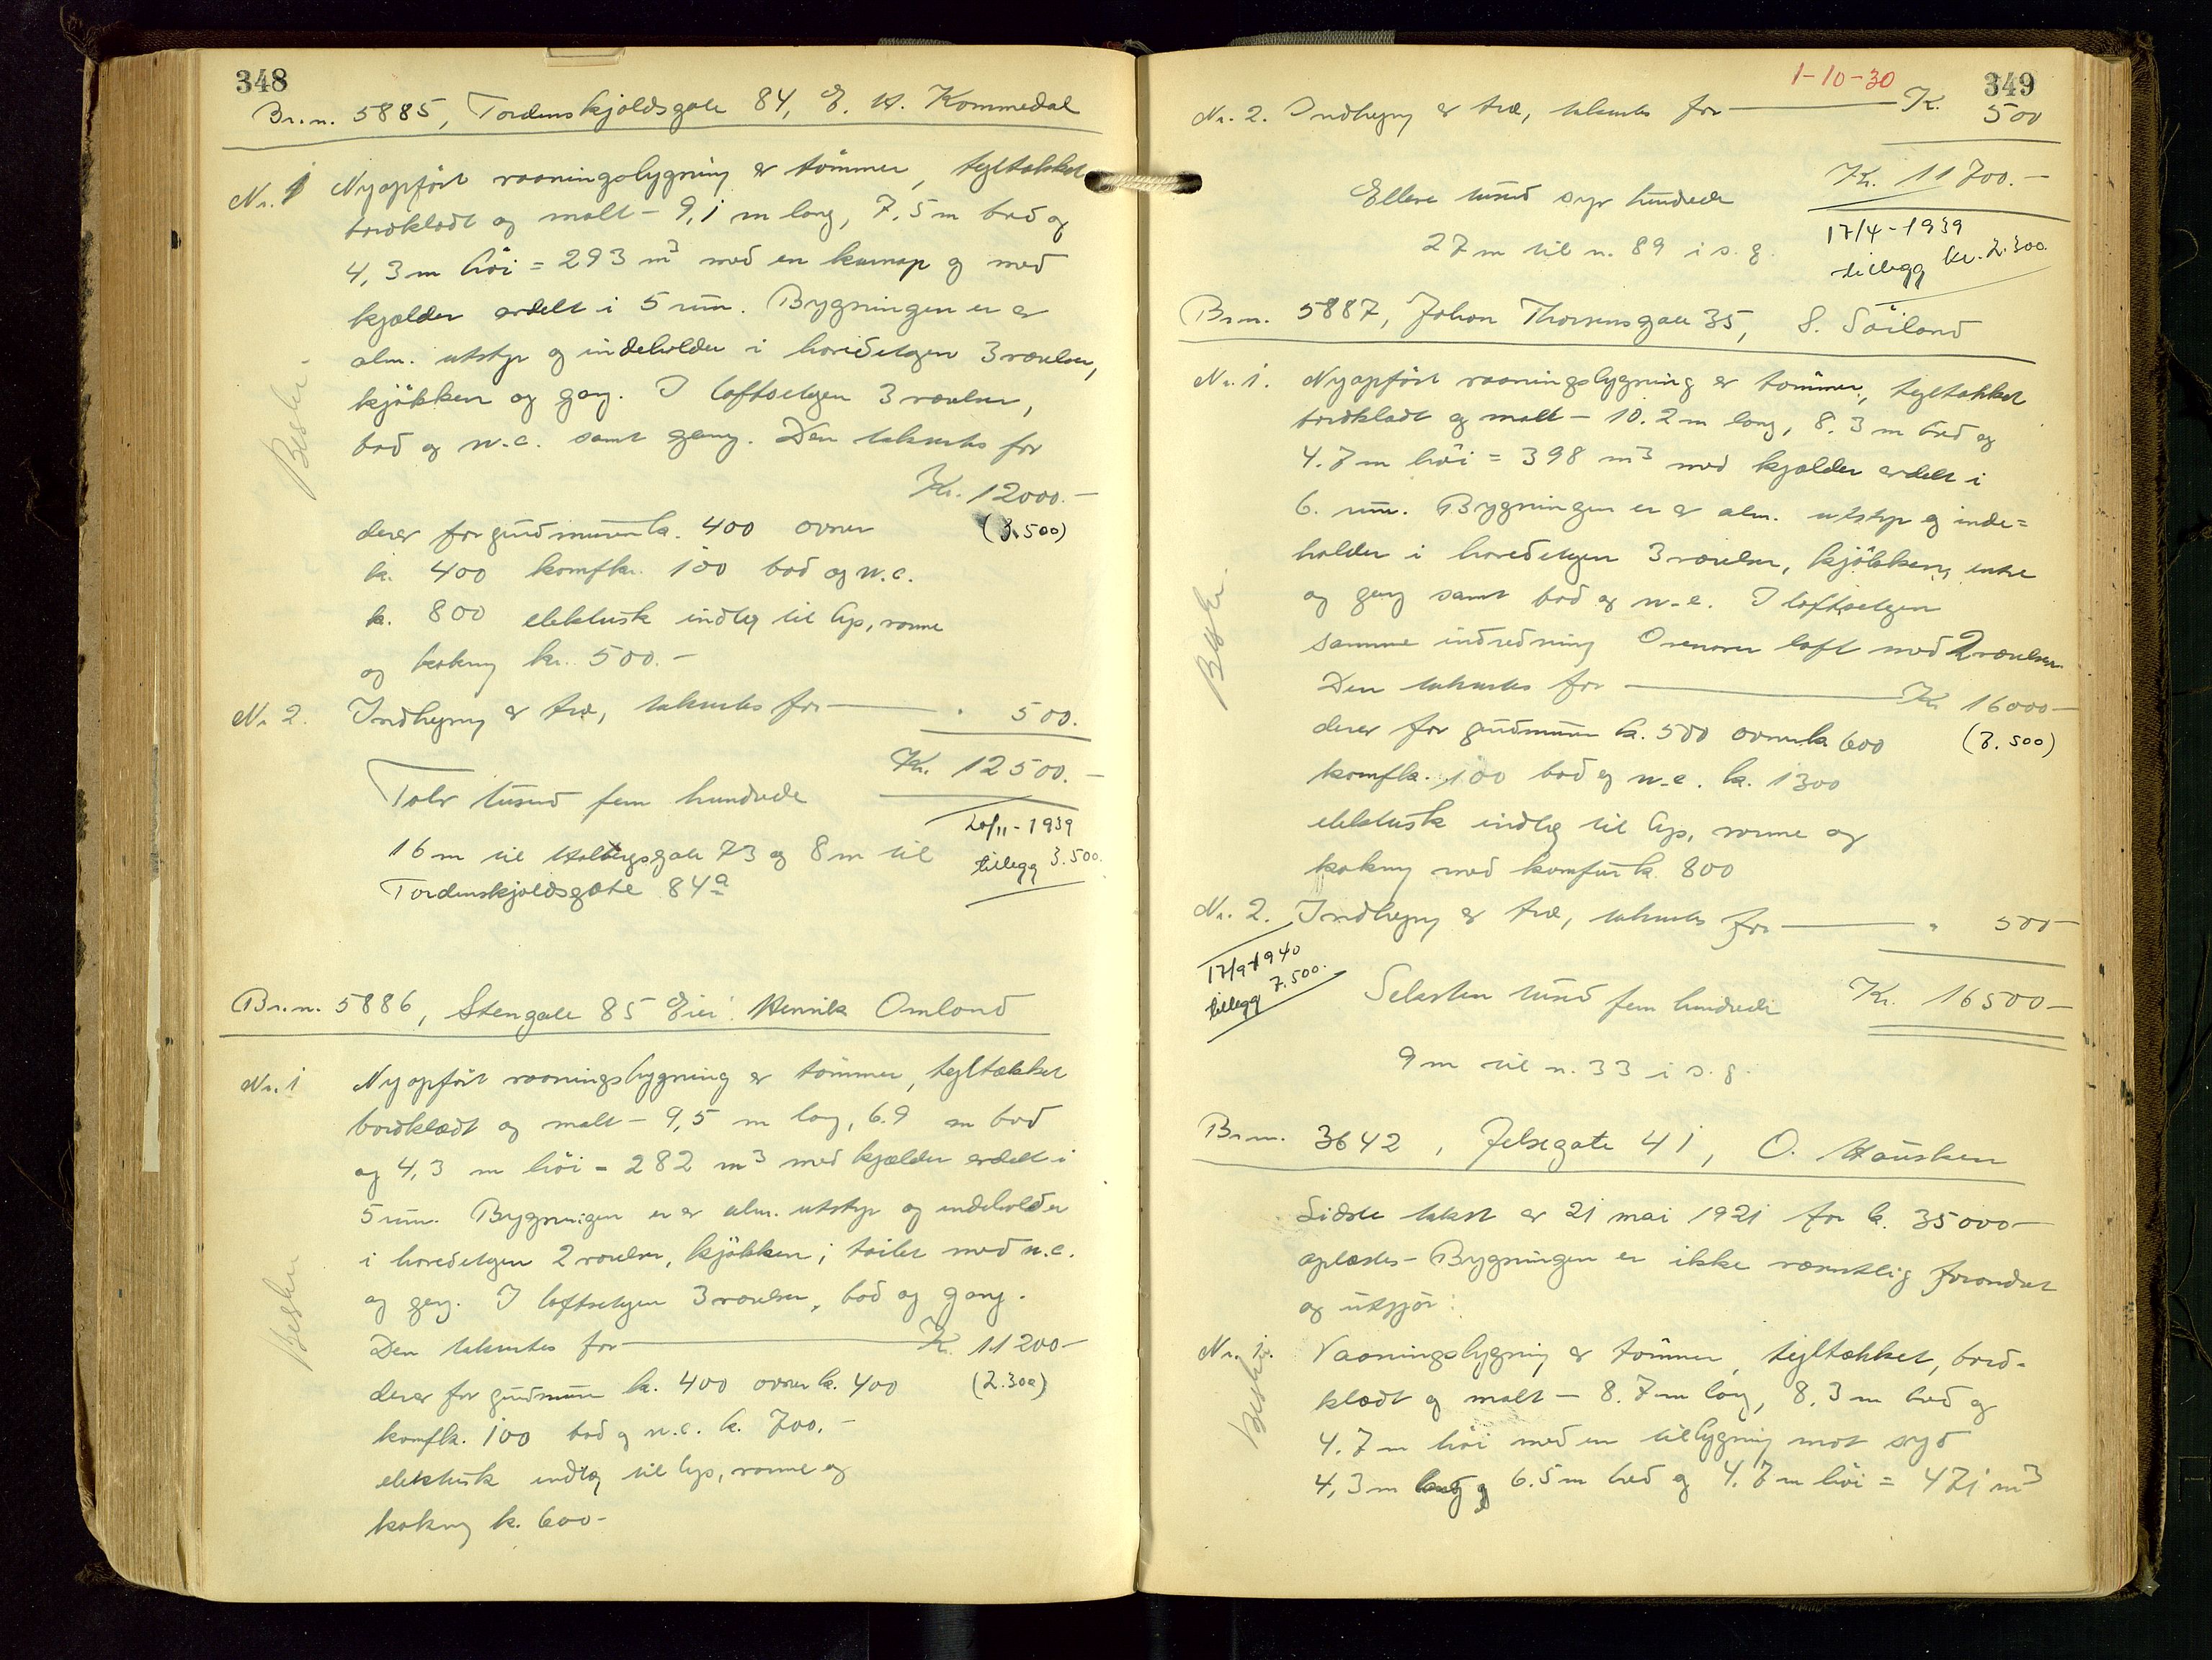 348
Br.n. 5885, Tordenskjoldsgate 84, E. H. Kommedal
Nr. 1 Nyopført vaaningsbygning av tømmer, tegltækket
bordklædt og malt - 9,1 m lang, 7,5 m bred og
4,3 m høi = 293 m³ med en karnap og med
kjælder avdelt i 5 rum. Bygningen er av
alm. utstyr og indeholder i hovedetagen 3 værelser,
kjøkken og gang. I loftsetagen 3 værelser,
bad og w.c. samt gang. Den taksertes for
Kr. 12000.-
Beskr.
derav for grundmuren kr. 400 ovner (3.500)
kr. 400 komf. kr. 100 bad og w.c.
kr. 800 elektrisk indlæg til lys, varme
og kokning kr. 500.-
Nr 2. Indhegning av træ, taksertes for " 500.
Kr. 12500.-
Tolv tusend fem hundrede
20/11-1939
tillegg 3.500.
16 m til Holbergsgate 73 og 8 m til
Tordenskjoldsgate 84a
Br.n. 5886, Stengate 85 Eier: Henrik Omland
Nr. 1 Nyopført vaaningsbygning av tømmer, tegltækket
bordklædt og malt - 9,5 m lang, 6.9 m bred
og 4,3 m høi = 282 m³ med kjælder avdelt i
5 rum. Bygningen er av alm. utstyr og indeholder
i hovedetagen 2 værelser, kjøkken, toilet med w.c.
og gang. I loftsetagen 3 værelser, bad og gang.
Beskr
Den taksertes for Kr. 11200-
derav for grundmur kr. 400 ovner kr. 400 (2.300)
komf. kr. 100 bad og w.c. kr. 700.-
elektrisk indlæg til lys, varme og
kokning kr. 600-
1-10-30
349
Nr. 2. Indhegning av træ, taksertes for Kr. 500
Kr. 11700.-
Elleve tusend syv hundrede
27 m til n. 89 i s. g.
17/4-1939
tillegg kr. 2.300.
Br.n. 5887, Johan Thorsensgate 35, S. Søiland
Nr. 1. Nyopført vaaningsbygning av tømmer, tegltækket
bordklædt og malt - 10.2 m lang, 8.3 m bred og
4.7 m høi = 398 m³ med kjælder avdelt i
6. rum. Bygningen er av alm. utstyr og inde=
holder i hovedetagen 3 værelser, kjøkken, entre
og gang samt bad og w.c. I loftsetagen
samme indredning Ovenover loft med 2 værelser.
Beskr.
Den taksertes for Kr 16000-
derav for grundmur kr. 500 ovner kr 600 (7.500)
komf. kr. 100 bad og w.c. kr. 1300
elektrisk indlæg til lys, varme og
kokning med komfur kr. 800
Nr. 2. Indhegning av træ, taksertes for " 500-
17/9-1940
tillegg 7.500.
Seksten tusend fem hundrede Kr. 16500-
9 m til n. 33 i s. g.
Br.n. 3642, Jelsegate 41, O. Hausken
Sidste takst av 21 mai 1921 for kr. 35000-
oplæstes - Bygningen er ikke væsentlig forandret
og utgjør:
Nr. 1. Vaaningsbygning av tømmer, tegltækket, bord-
klædt og malt - 8.7 m lang, 8,3 m bred og
4.7 m høi med en tilbygning mot syd
4,3 m lang og 6.5 m bred og 4.7 m høi = 471 m³
Beskr.